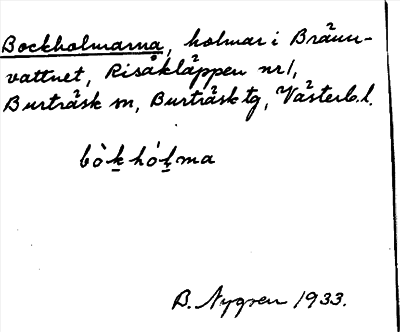 Bockholmarna, holmar i Bränn-
vattnet, Risåkläppen nr 1,
Burträsk sn, Burträsk tg, Västerb.l.
bòkhólma
B. Nygren 1933.